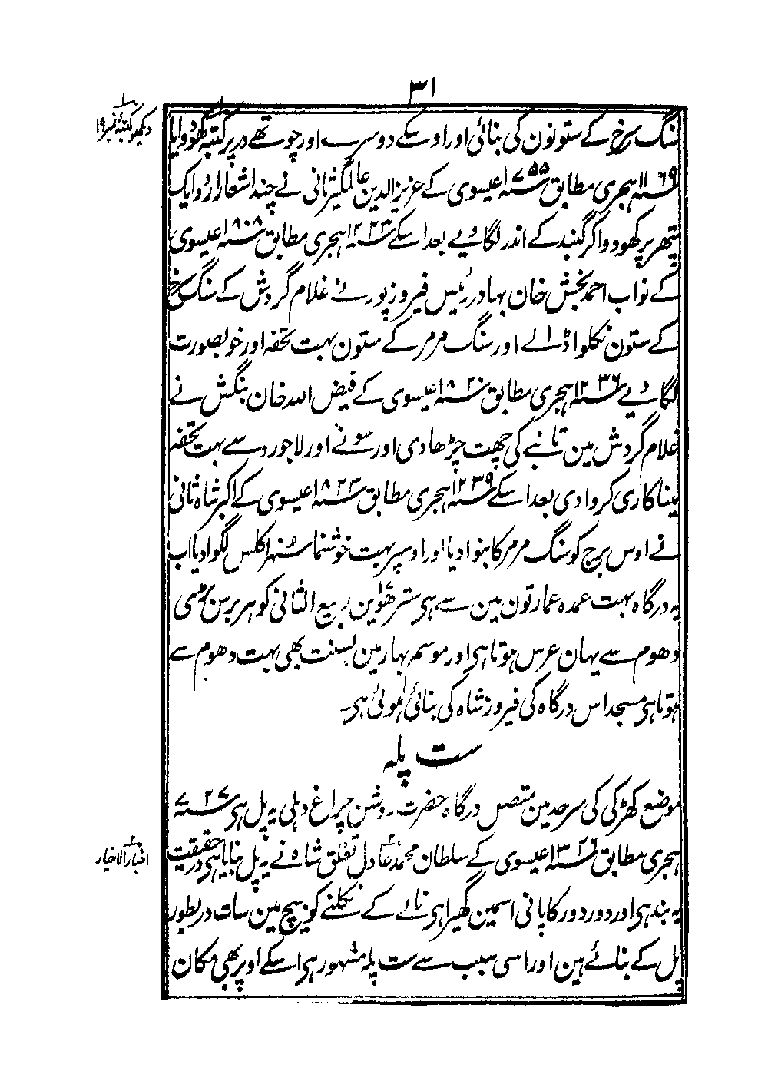 ۳۱
سنگ سرخ کے ستونون کی بنائی اور اوسکے دوسرے اور چوتھے در پر کتبہ کھودوایا
دیکھو کتبہ نمبر ۱۹
۱۱۶۹ ہجری مطابق ۱۷۵۵ عیسوی کے عزیز الدین عالمگیر ثانی نے چند اشعار اردو ایک
پتھر پر کھودواکر گنبد کے اندر لگا دیے بعد اسکے ۱۲۲۳ ہجری مطابق ۱۸۰۸ عیسوی
کے نواب احمد بخش خان بہادر رئیس فیروزپور نے غلام گردش کے سنگ سرخ
کے ستون نکلوا ڈالے اور سنگ مرمر کے ستون بہت تحفہ اور خوبصورت
لگا دیے ۱۲۳۶ ہجری مطابق ۱۸۲۰ عیسوی کے فیض اللہ خان بنگش نے
غلام گردش مین تانبے کی چھت چڑھادی اور سونے اور لاجورد سے بہت تحفہ
میناکاری کروا دی بعد اسکے ۱۲۳۹ ہجری مطابق ۱۸۲۳ عیسوی کے اکبر شاہ ثانی
نے اوس برج کو سنگ مرمر کا بنوا دیا اور اوسپر بہت خوشنما سنہرا کلس لگوادیا اب
یہ درگاہ بہت عمدہ عمارتون مین سے ہی سترھوین ربیع الثانی کو ہر برس بڑی
دھوم سے یہان عرس ہوتا ہی اور موسم بہار مین بسنت بھی بہت دھوم سے
ہوتا ہی مسجد اس درگاہ کی فیروز شاہ کی بنائی ہوئی ہی۔
ست پلہ
موضع کھڑکی کی سرحد مین متصل درگاہ حضرت روشن چراغ دہلی یہ پل ہی ۷۲۷
ہجری مطابق ۱۳۲۶ عیسوی کے سلطان محمد عادل تغلق شاہ نے یہ پل بنایا ہی درحقیقت
اخبار الاخیار
یہ بند ہی اور دور دور کا پانی اسمین گھیرا ہی نالے کے نکلنے کو بیچ مین سات در بطور
پل کے بنائے ہین اور اسی سبب سے ست پلہ مشہور ہی اسکے اوپر بھی مکان